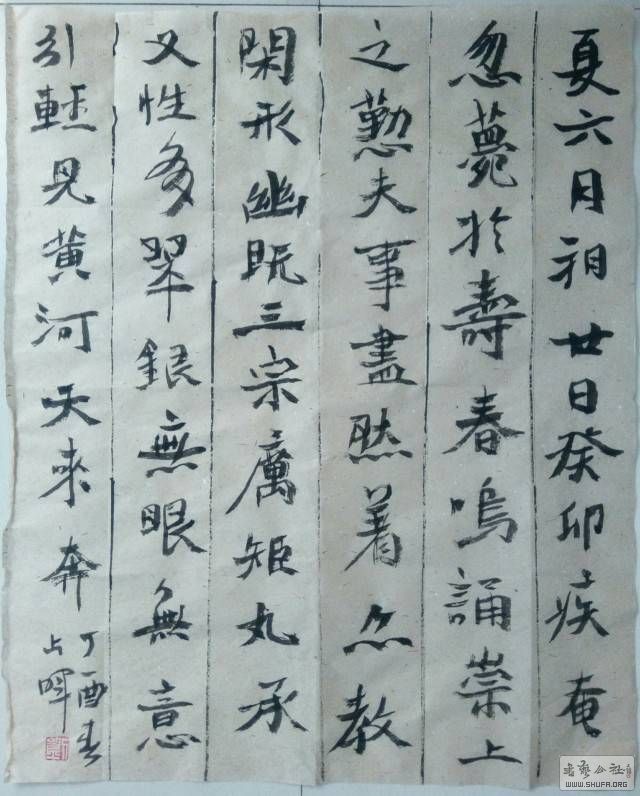 夏六月朔廿日癸卯疾奄
忽薨於壽春嗚誦崇上
之懃夫事盡然着尒教
閑形幽既三宗厲矩丸承
又性多翠銀無眼無意
引輕見黃河天來奔
丁酉春
占暉
書藝公社
WWW.SHUFA.ORG